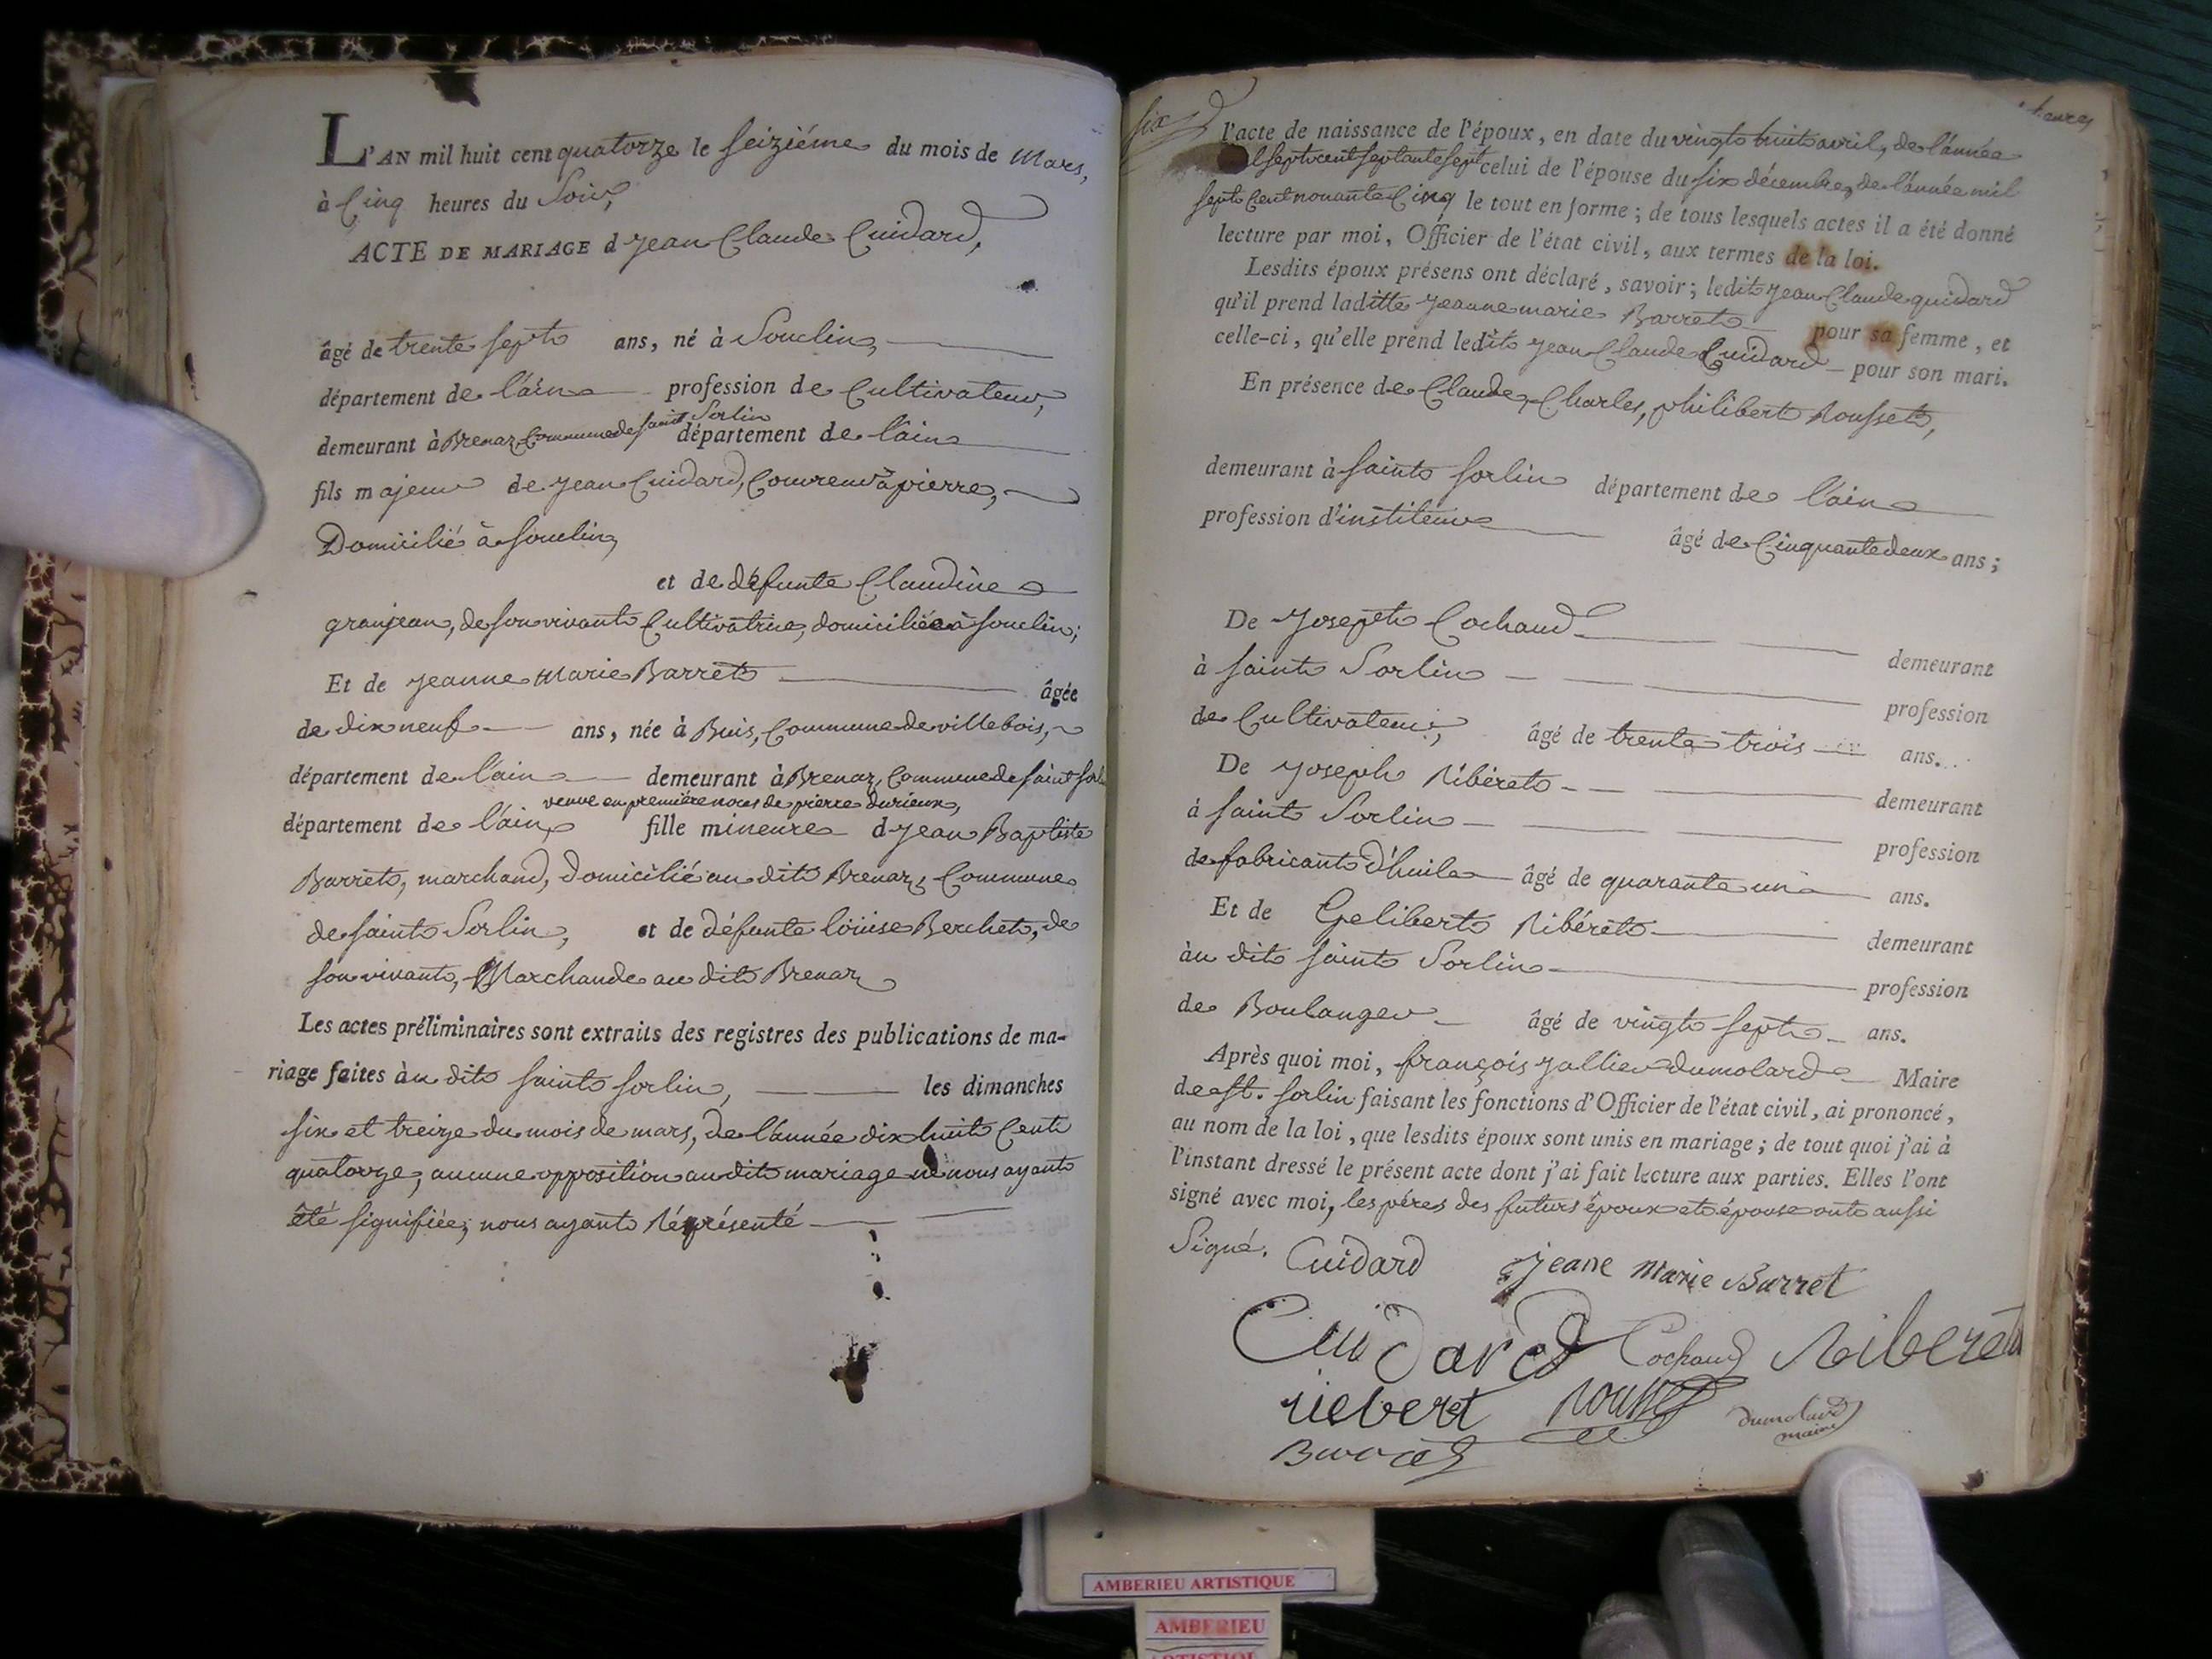 L'AN mil huit cent quatorze le seiziéme du mois de Mars,
à Cinq heures du Soir,
ACTE DE MARIAGE d Jean Claude Cuidard,
âgé de trente sept ans, né à Souclin,
département de l'ain profession de Cultivateur,
demeurant à Brenaz Commune de saint Sorlin département de l'ain
fils majeur de Jean Cuidard, Couvreur à pierre,
Domicilié à souclin,
et de défunte Claudine
granjean, de son vivant Cultivatrice, domiciliée à souclin;
Et de Jeanne Marie Barret âgée
de dix neuf ans, née à Buis, Commune de villebois,
département de l'ain demeurant à Brenaz, Commune de saint sorl
veuve en première noces de pierre durieux,
département de l'ain, fille mineure d Jean Baptiste
Barret, marchand, Domicilié au dit Brenaz, Commune
de saint Sorlin, et de défunte loüise Berchet, de
son vivant, Marchande au dit Brenaz
Les actes préliminaires sont extraits des registres des publications de ma-
riage faites àu dit saint sorlin, les dimanches
six et treize du mois de mars, de l'année dix huit Cent
quatorze, aucune opposition au dit mariage ne nous ayant
été signifiée; nous ayant Réprésenté
six
heures
l'acte de naissance de l'époux, en date du vingt huit avril, de l'année
l sept cent septante sept celui de l'épouse du six décembre, de l'année mil
sept Cent nonante Cinq le tout en forme; de tous lesquels actes il a été donné
lecture par moi, Officier de l'état civil, aux termes de la loi.
Lesdits époux présens ont déclaré, savoir; ledit Jean Claude quidard
qu'il prend laditte Jeanne marie Barret pour sa femme, et
celle-ci, qu'elle prend ledit Jean Claude Cuidard pour son mari.
En présence de Claude, Charles, philibert Rousset,
demeurant à saint sorlin département de l'ain
profession d'instituteur âgé de Cinquante deux ans;
De Joseph Cochaud demeurant
à saint Sorlin profession
de Cultivateur, âgé de trente trois ans.
De Joseph Ribéret demeurant
à saint Sorlin profession
de fabricant d'huile âgé de quarante un ans.
Et de Gelibert Ribéret demeurant
àu dit saint Sorlin profession
de Boulanger âgé de vingt sept ans.
Après quoi moi, françois Jallier dumolard Maire
de st. sorlin faisant les fonctions d'Officier de l'état civil, ai prononcé,
au nom de la loi, que lesdits époux sont unis en mariage; de tout quoi j'ai à
l'instant dressé le présent acte dont j'ai fait lecture aux parties. Elles l'ont
signé avec moi, les péres des futurs époux et épouse ont aussi
Signé. Cuidard Jeane Marie Barret
Cuidard Cochaud Riberet
riebert Rousset dumolard
maire
Barret
AMBERIEU ARTISTIQUE
AMBERIEU
ARTISTIQUE